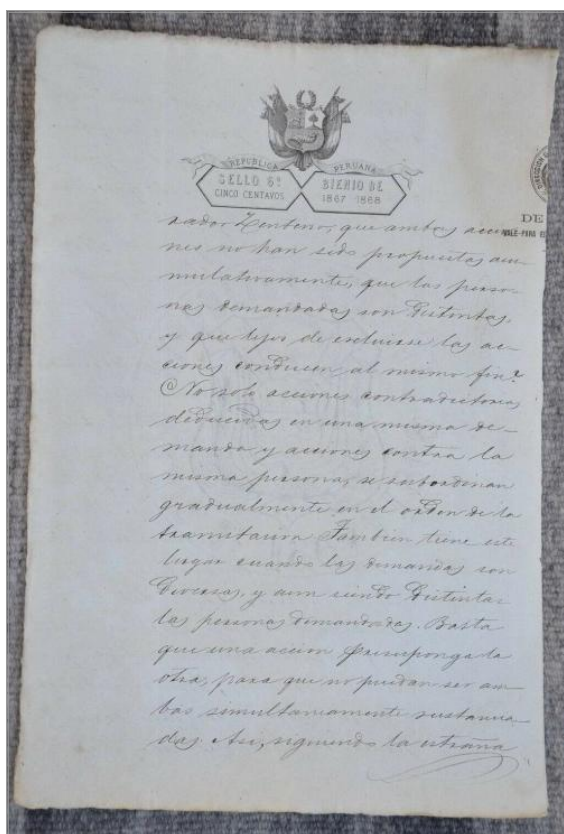 REPUBLICA PERUANA
SELLO 6º BIENIO DE
CINCO CENTAVOS 1867 1868
DE
VALE-PARA EL
rador Zenteno, que ambas accio-
nes no han sido propuestas acu-
mulativamente, que las perso-
nas demandadas son distintas,
y que lejos de escluirse las ac-
ciones conducen al mismo fin?
No solo acciones contradictorias
deducidas en una misma de-
manda y acciones contra la
misma persona, se subordinan
gradualmente en el orden de la
tramitacion. Tambien tiene este
lugar cuando las demandas son
diversas, y aun siendo distintas
las personas demandadas. Basta
que una accion presuponga la
otra, para que no puedan ser am-
bas simultaneamente sustancia-
das. Asi, siguiendo la estraña